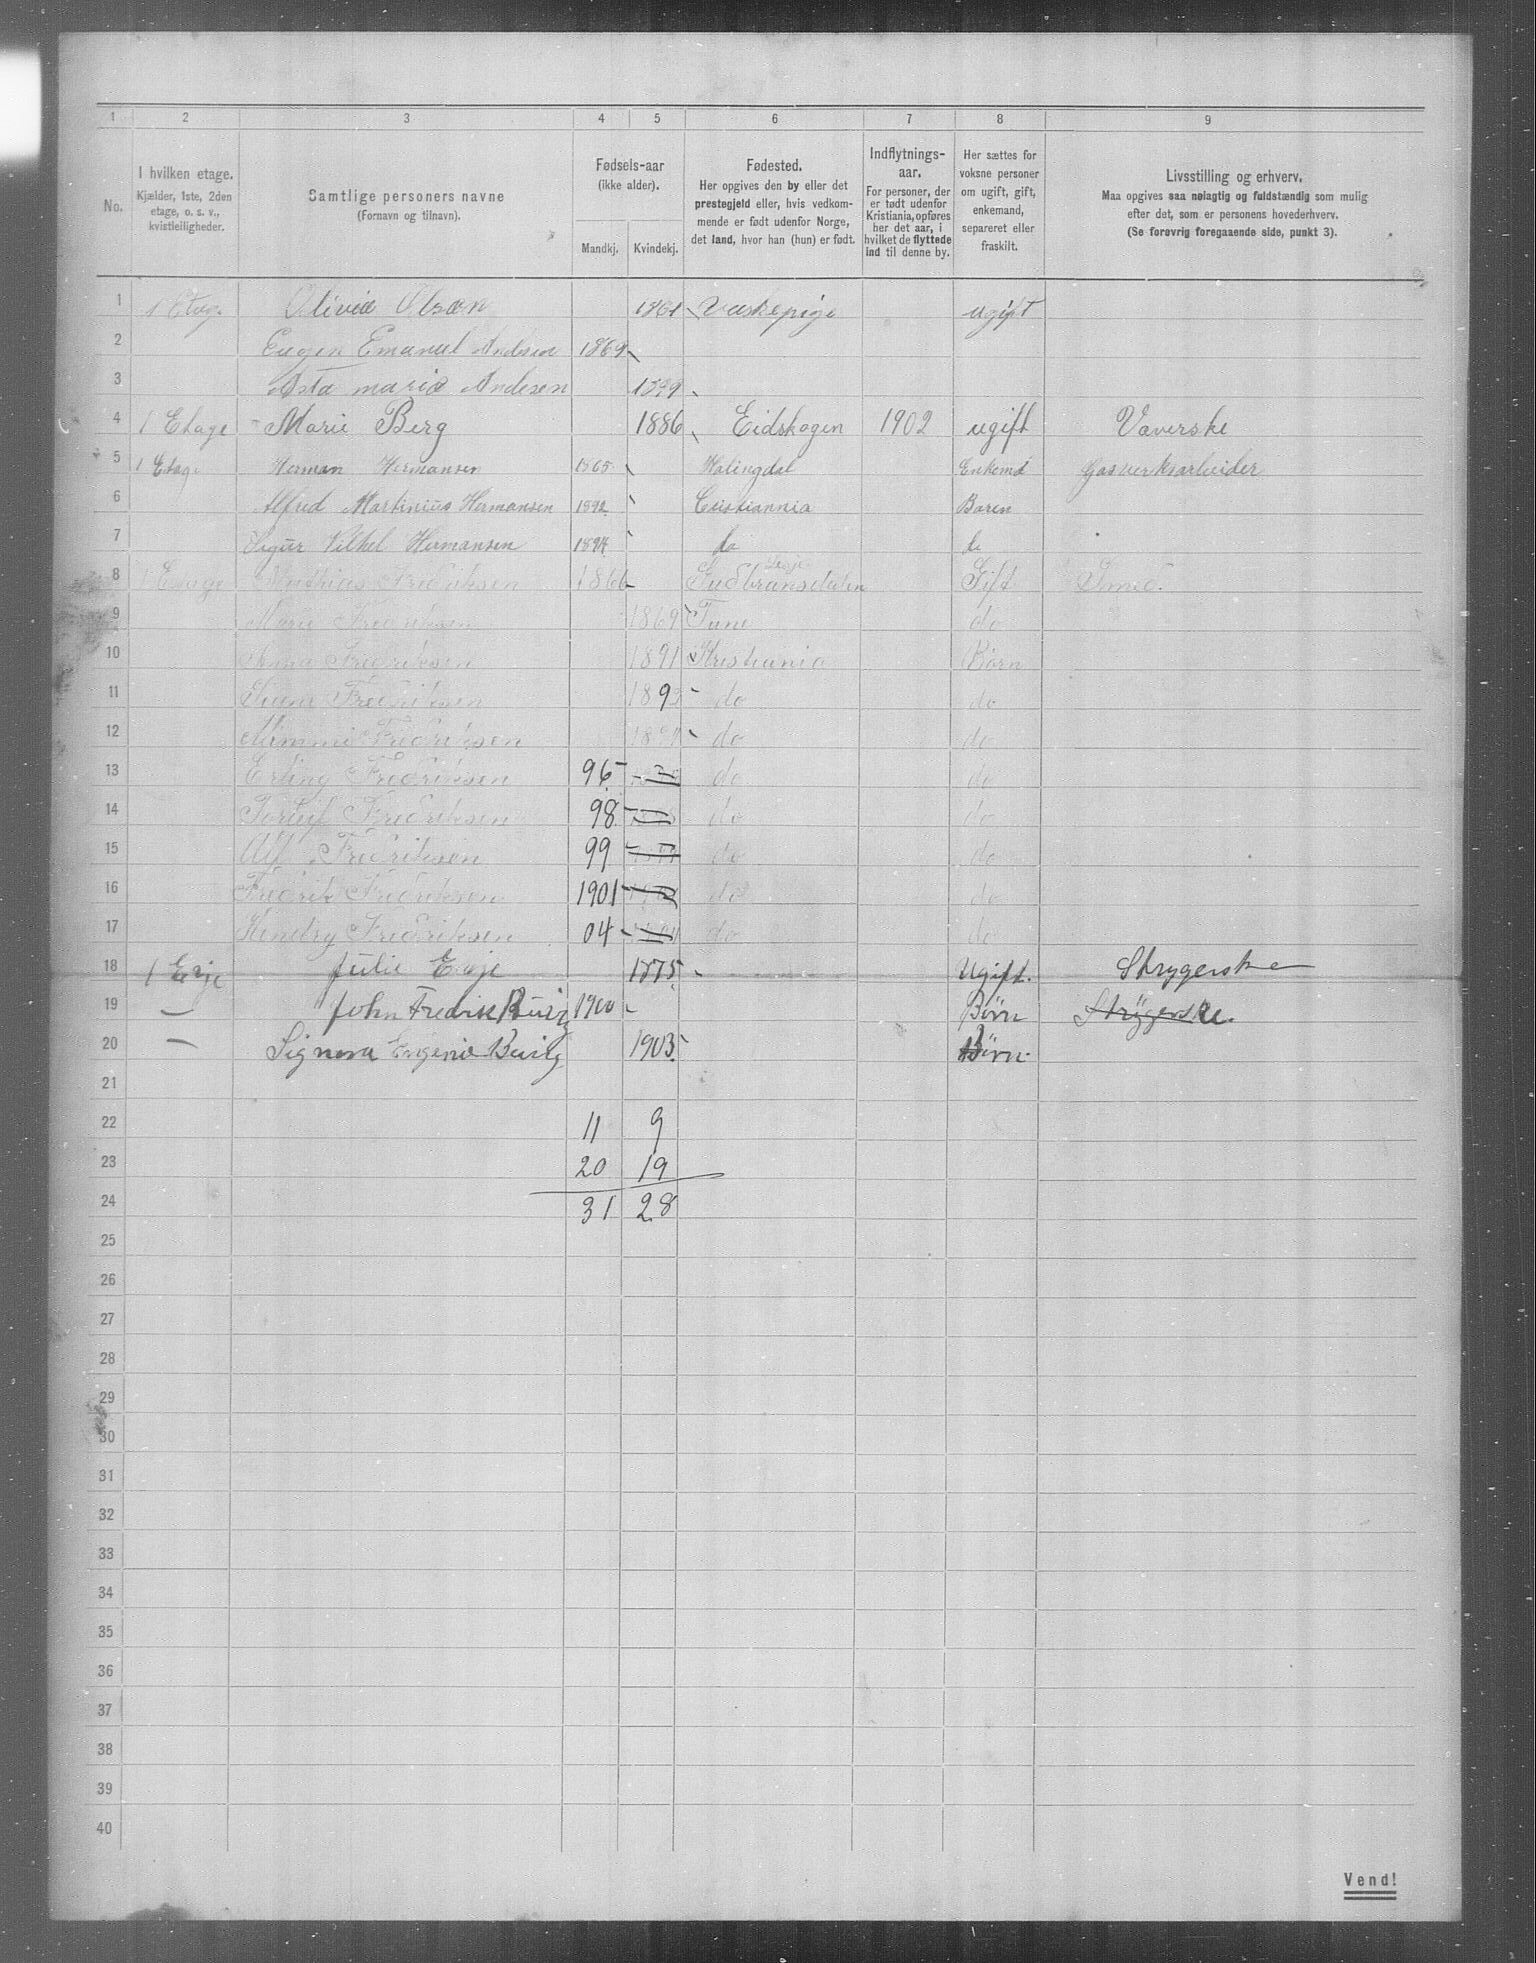 1 2 3 4 5 6 7 8 9
No.
I hvilken etage.
Kjælder, 1ste, 2den
etage, o. s. v.,
kvistleiligheder.
Samtlige personers navne
(Fornavn og tilnavn).
Fødsels-aar
(ikke alder).
Mandkj. Kvindekj.
Fødested.
Her opgives den by eller det
prestegjeld eller, hvis vedkom-
mende er født udenfor Norge,
det land, hvor han (hun) er født.
Indflytnings-
aar.
For personer, der
er født udenfor
Kristiania, opføres
her det aar, i
hvilket de flyttede
ind til denne by.
Her sættes for
voksne personer
om ugift, gift,
enkemand,
separeret eller
fraskilt.
Livsstilling og erhverv.
Maa opgives saa nøiagtig og fuldstændig som mulig
efter det, som er personens hovederhverv.
(Se forøvrig foregaaende side, punkt 3).
1 1 Etag. Olivia Olsen 1861 Vaskepige ugift
2 Eugen Emanuel Andesen 1869
3 Asta maria Andesen
4 1 Etage Marie Berg 1886 Eidskogen 1902 ugift Væverske
5 1 Etage Herman Hermansen 1865 Halingdal Enkemd Gasverksarbeider
6 Alfred Martinius Hermansen 1892 Cristiannia Baren
7 Sigur Vilhel Hermansen 1894 do do
8 1 Etage Mathias Fredriksen 1866 Gudbransdalen Gift Smed.
9 Marie Fredriksen 1869 Tune do
10 Anna Fredriksen 1891 Kristiania Børn
11 Fredriksen 1893 do do
12 Mimmi Fredriksen do do
13 Erling Fredriksen 96 do do
14 Torleif Fredriksen 98 do do
15 Alf Fredriksen 99 do do
16 Fredrik Fredriksen 1901 do do
17 Hendry Fredriksen 04 do do
18 1 Julie Evje 1875 Ugift. Strygerske
19 — John Fredrik 1900 Børn Strygerske.
20 — Signora Eugenie 1903 Børn
21
22 11 9
23 20 19
24 31 28
25
26
27
28
29
30
31
32
33
34
35
36
37
38
39
40
Vend!